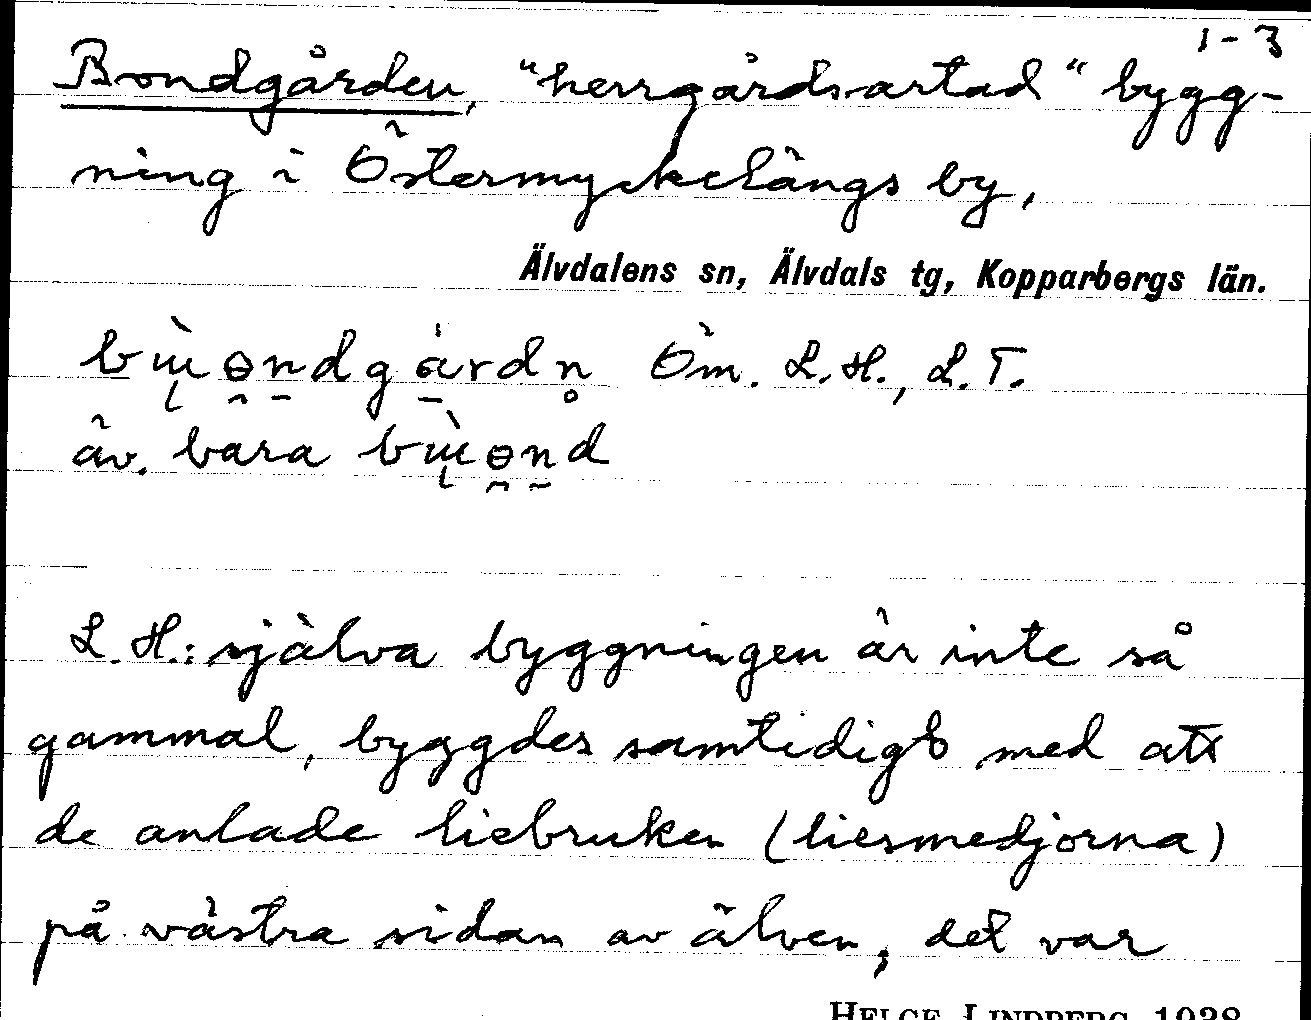 1-3
Bondgården, "herrgårdsartad" bygg-
ning i Östermyckelängs by,
Älvdalens sn, Älvdals tg, Kopparbergs län.
Öm. L.H., L.T.
äv. bara
L.H.: själva byggningen är inte så
gammal, byggdes samtidigt med att
de anlade liebruken (liesmedjorna)
på västra sidan av älven, det var
HELGE LINDBERG 1938